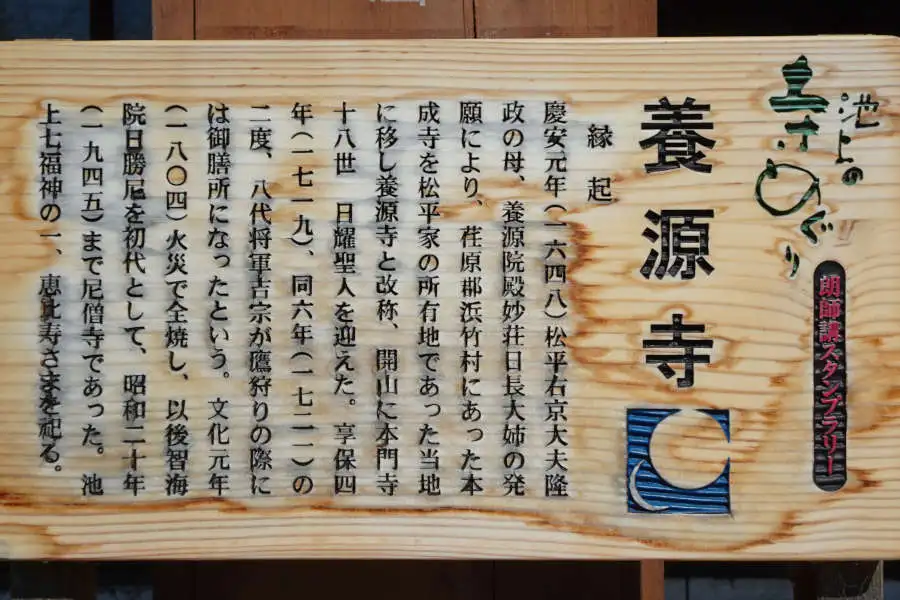 池上の
まちめぐり
朗師講スタンプラリー
養源寺
縁起
慶安元年(一六四八)松平右京大夫隆
政の母、養源院殿妙荘日長大姉の発
願により、荏原郡浜竹村にあった本
成寺を松平家の所有地であった当地
に移し養源寺と改称、開山に本門寺
十八世 日耀聖人を迎えた。享保四
年(一七一九)、同六年(一七二一)の
二度、八代将軍吉宗が鷹狩りの際に
は御膳所になったという。文化元年
(一八〇四)火災で全焼し、以後智海
院日勝尼を初代として、昭和二十年
(一九四五)まで尼僧寺であった。池
上七福神の一、恵比寿さまを祀る。